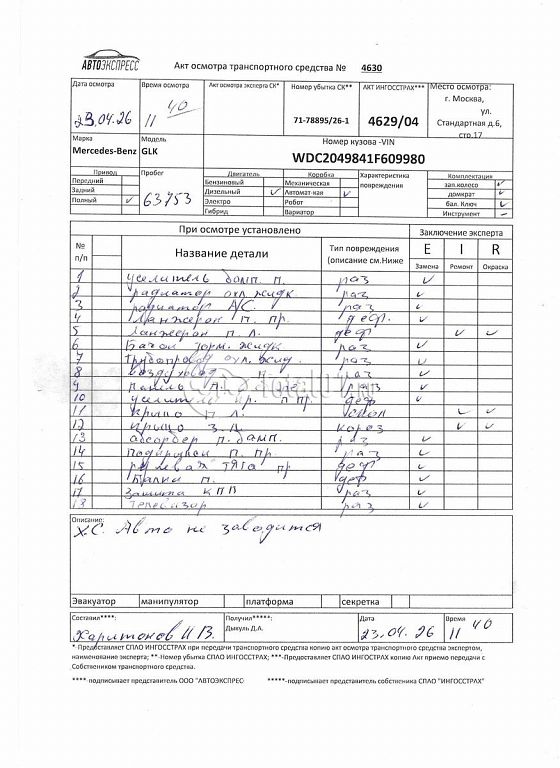 АВТОЭКСПРЕСС
Акт осмотра транспортного средства № 4630
Дата осмотра Время осмотра Акт осмотра эксперта СК* Номер убытка СК** АКТ ИНГОССТРАХ*** Место осмотра:
23.04.26 11 40 71-78895/26-1 4629/04 г. Москва,
ул.
Стандартная д.6,
стр.17
Марка Модель Номер кузова -VIN
Mercedes-Benz GLK WDC2049841F609980
Привод Пробег Двигатель Коробка Характеристика повреждения Комплектация
Передний Бензиновый Механическая зап.колесо ✓
Задний 63753 Дизельный ✓ Автомат-кая ✓ домкрат ✓
Полный ✓ Электро Робот бал. Ключ ✓
Гибрид Вариатор Инструмент -
При осмотре установлено Заключение эксперта
№ п/п Название детали Тип повреждения (описание см.Ниже E I R
Замена Ремонт Окраска
1 усилитель бамп. п. раз ✓
2 радиатор охл. жидк. раз ✓
3 радиатор A/C. раз ✓
4 Ланжерон п. пр. деф. ✓
5 Ланжерон п. л. деф ✓ ✓
6 Бачок торм. жидк. раз ✓
7 Трубопровод охл. жид. раз ✓
8 воздуховод раз ✓
9 панель п. раз ✓
10 усилитель пр. деф ✓
11 Крыло п. л. скол ✓ ✓
12 Крыло з. л. короз ✓ ✓
13 абсорбер п. бамп. раз ✓
14 Подкрылок п. пр. раз ✓
15 рулевая тяга пр деф ✓
16 Балка п. деф ✓
17 Защита КПП раз ✓
18 Телевизор раз ✓
Описание:
Х.С. Авто не заводится
Эвакуатор манипулятор платформа секретка
Составил****: Получил*****: Дата Время
Харитонов И.В. Дыхуль Д.А. 23.04.26 11 40
* Предоставляет СПАО ИНГОССТРАХ при передачи транспортного средства копию акт осмотра транспортного средства экспертом,
наименование эксперта; **-Номер убытка СПАО ИНГОССТРАХ; ***-Предоставляет СПАО ИНГОСТРАХ копию Акт приемо передачи с
Собственником транспортного средства.
**** подписывает представитель ООО "АВТОЭКСПРЕС *****-подписывает представитель собственика СПАО "ИНГОССТРАХ"